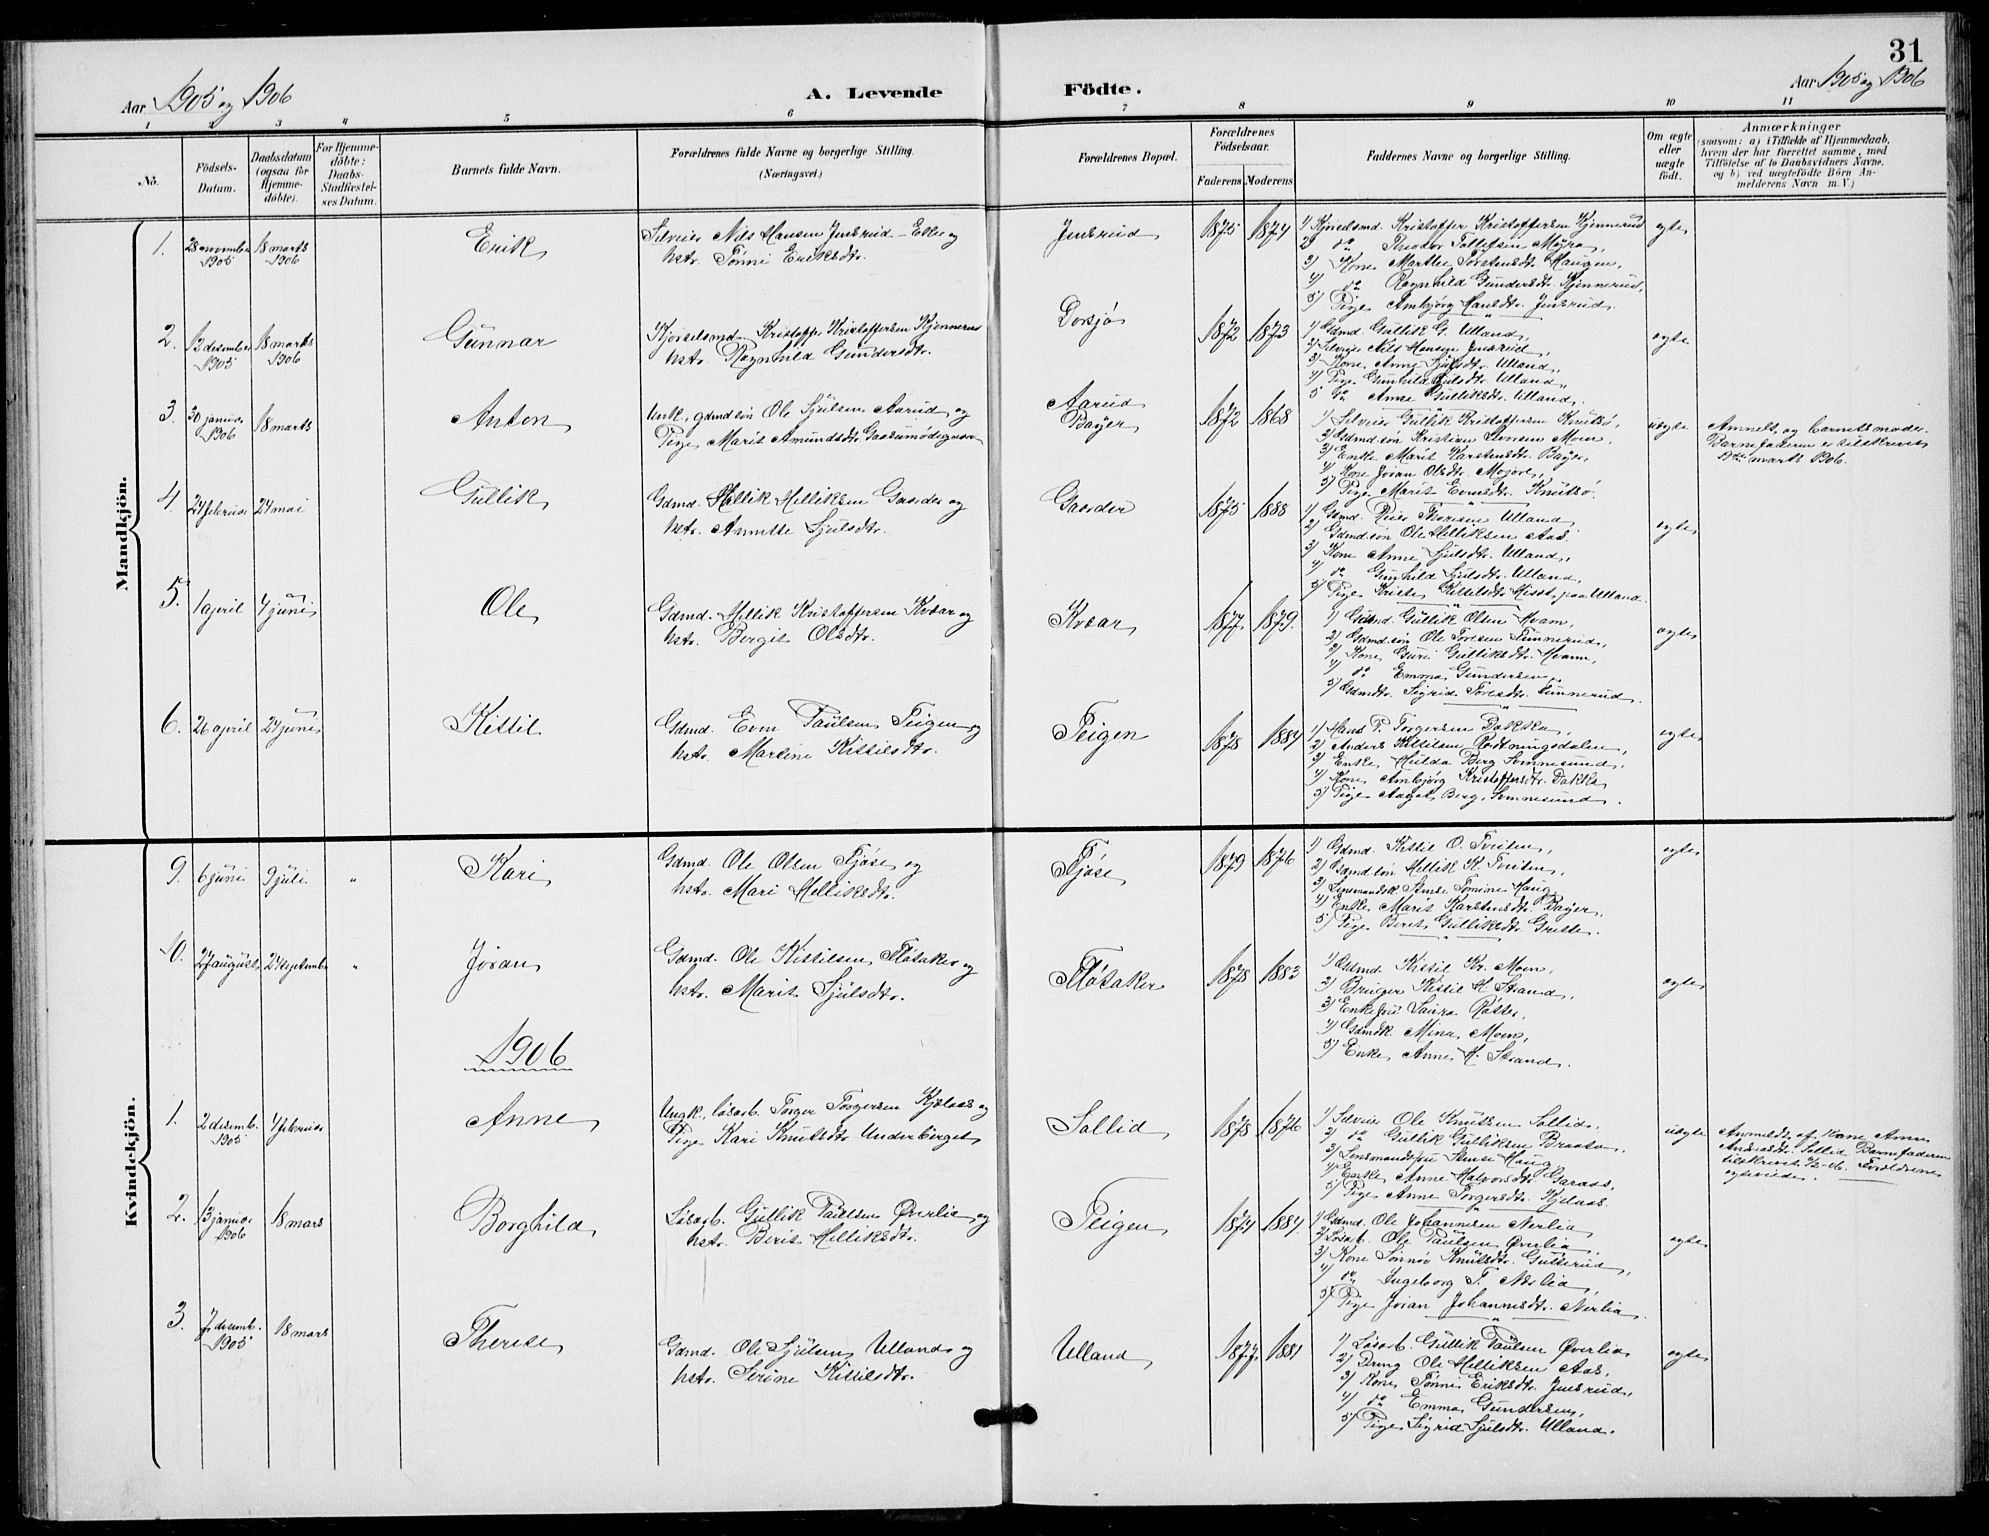 31
Aar 1905 og 1906
A. Levende Födte.
Aar 1905 og 1906
1 2 3 4 5 6 7 8 9 10 11
No.
Födsels-Datum.
Daabsdatum (ogsaa for Hjemme-döbte).
For Hjemme-döbte: Daabs-Stadfæstel-ses Datum.
Barnets fulde Navn.
Forældrenes fulde Navne og borgerlige Stilling.
(Næringsvei.)
Forældrenes Bopæl.
Forældrenes Födselsaar.
Faderens Moderens
Faddernes Navne og borgerlige Stilling.
Om ægte eller uægte födt.
Anmærkninger
(saasom: a) i Tilfælde af Hjemmedaab, hvem der har forrettet samme, med Tilföielse af to Daabsvidners Navne, og b) ved uægtefödte Börn An-melderens Navn m. V.)
Mandkjön.
1. 28 november 1905 18 marts 1906 Erik
Selveier Nils Hansen Jusrud - Eller og
hstr. Tönni Eriksdtr.
Jusrud 1875 1874
1) Kjörselsmd. Kristoffer Kristoffersen Kjennerud
2) do Theodor Tollefsen Möyra,
3) Kone Marthe Torstensdtr. Haugen,
4) do Ragnhild Gundersdtr. Kjennerud,
5) Pige Ambjörg Hansdtr. Jusrud.
egte
2. 12 desember 1905 18 marts 1906 Gunnar
Kjörselsmd. Kristoffer Kristoffersen Kjennerud
hstr. Ragnhild Gundersdtr.
Dorsjö 1872 1873
1) Gdmd. Gullik G. Ulland,
2) Selveier Nils Hansen Jusrud,
3) Kone Anne Sjulsdtr. Ulland,
4) Pige Gunhild Sjulsdtr. Ulland,
5) do Anne Gulliksdtr. Ulland.
egte
3. 30 januar 1906 18 marts Anton
Unk., gdmdsön Ole Sjulsen Aarud og
Pige Marit Amundsdtr.
Aarud
Bayer 1872 1868
1) Selveier Gullik Kristoffersen Knutsö,
2) Gdmdsön Kristian Moen,
3) Enke Marit Karstensdtr. Bayer,
4) Kone Jöran Olsdtr.
5) Pige Marit Evensdtr. Knutsö.
uegte
Anmeldt og barnets moder.
Barnefaderen er tilskrevet
marts 1906.
4. 24 februar 24 mai Gullik
Gdmd. Hellik Helliksen Gaarder og
hstr. Annette Sjulsdtr.
Gaarder 1875 1888
1) Gdmd. Reier Thoresen Ulland
2) Gdmdsön Ole Helliksen Aas.
3) Kone Anne Sjulsdtr. Ulland,
4) do Gunhild Sjulsdtr. Ulland,
5) Pige Kristi Kittilsdtr. paa Ulland.
egte
5. 1 april 4 juni Ole
Gdmd. Hellik Kristoffersen Kvar og
hstr. Bergit Olsdtr.
Kvar 1877 1879
1) Gdmd. Gullik Olsen Hvam,
2) Gdmdsön Ole Toresen Tinnerud,
3) Kone Guri Gulliksdtr. Hvam,
4) do Emma Gundersen,
5) Gdmdtr. Sigrid Toresdtr. Tinnerud.
egte
6. 26 april 24 juni Kittil
Gdmd. Even Paulsen Teigen og
hstr. Martine Kittilsdtr.
Teigen 1878 1884
1) Hans P. Torgersen Dokka,
2) Anders Kittilsen
3) Enke Hulda Berg Svennesund,
4) Kone Ambjörg Kristoffersdtr. Dokka
5) Pige Aagot Berg, Svennesund.
egte
Kvindekjön.
9. 6 juni 9 juli " Kari
Gdmd. Ole Olsen Fjöse og
hstr. Mari Helliksdtr.
Fjöse 1879 1876
1) Gdmd. Kittil O. Tveiten,
2) Gdmdsön Hellik K. Tveiten,
3) Lensmandsk. Stense Tomine Haug,
4) Enke Marit Karstensdtr. Bayer,
5) Pige Berit Gulliksdtr. Grette.
egte
10. 27 august 24 september " Jöran
Gdmd. Ole Kittilsen Flötaker og
hstr. Marit Sjulsdtr.
Flötaker 1878 1883
1) Gdmd. Kittil Kr. Moen,
2) Bruger Kittil H. Strand,
3) Enkefru Laura Röster,
4) Gdmdk. Mina Moen,
5) Enke Anne H. Strand.
egte
1906
1. 2 desemb. 1905 4 februar Anne
Ungk., lösarb. Torger Torgersen Kjölaas og
Pige Kari Knutsdtr. Underberget
Sollid 1878 1876
1) Selveier Ole Knutsen Sollid,
2) do Gullik Gulliksen Braata,
3) Lensmandsfru Stense Haug
4) Enke Anne Halvorsdtr. Garaas,
5) Pige Anne Torgersdtr. Kjölaas.
uegte
Anmeldt af Kone Anne
Andersdtr. Sollid. Barnefaderen
tilskrevet 4/2-06. Forældrene
egteviede.
2. 13 januar 1906 18 mars Borghild
Lösarb. Gullik Paulsen Øverlia og
hstr. Berit Helliksdtr.
Teigen 1874 1884.
1) Gdmd. Ole Johannesen Nerlia
2) Lösarb. Ole Paulsen Øverlia,
3) Kone Sönnöv Knutsdtr. Gutterud,
4) do Ingeborg T. Nerlia,
5) Pige Jöran Johannesdtr. Nerlia.
egte
3. 7 desemb. 1905 18 mars Therese
Gdmd. Ole Sjulsen Ulland og
hstr. Serine Kittilsdtr.
Ulland 1877 1881
1) Lösarb. Gullik Paulsen Øverlia
2) Dreng Ole Helliksen Aas,
3) Kone Tönni Eriksdtr. Jusrud,
4) do Emma Gundersen,
5) Pige Sigrid Sjulsdtr. Ulland.
egte